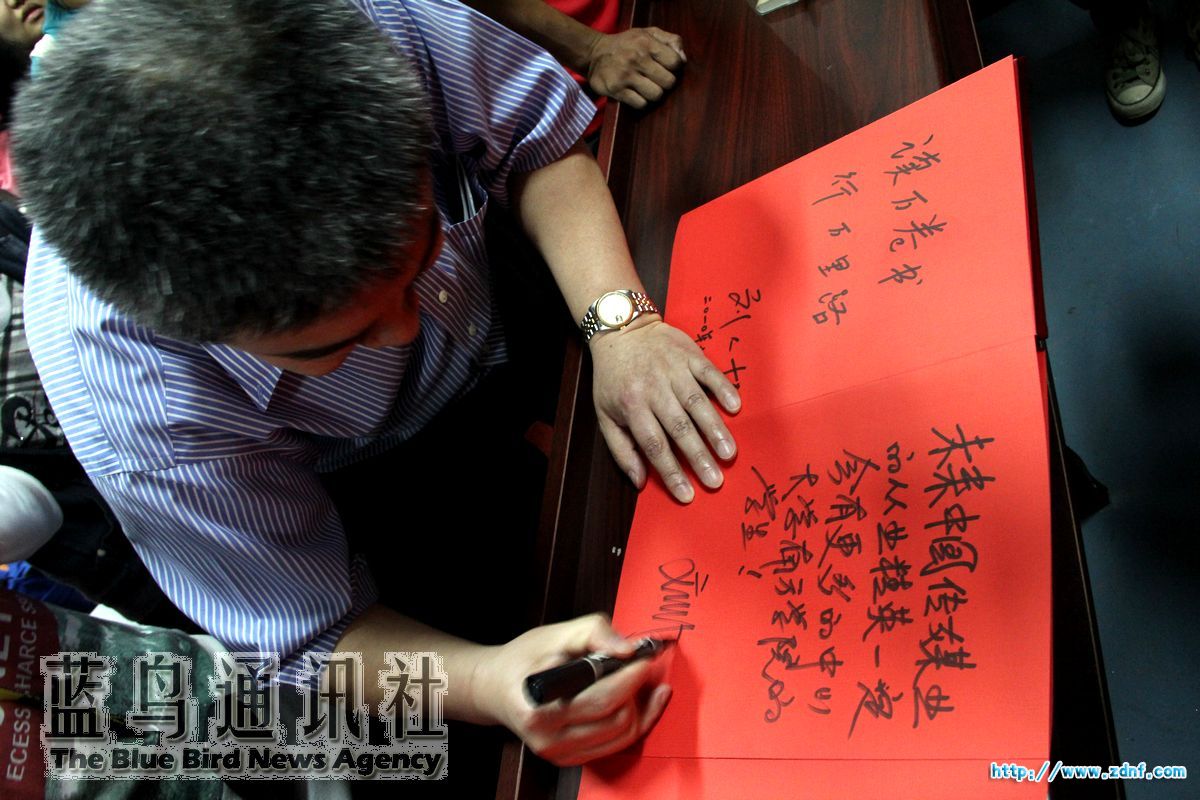 读万卷书
行万里路
未来中國传媒业
的从业精英一定
会有更多的中山
大学南方学院的
学生!
蓝鸟通讯社
The Blue Bird News Agency
http://www.zdnf.com